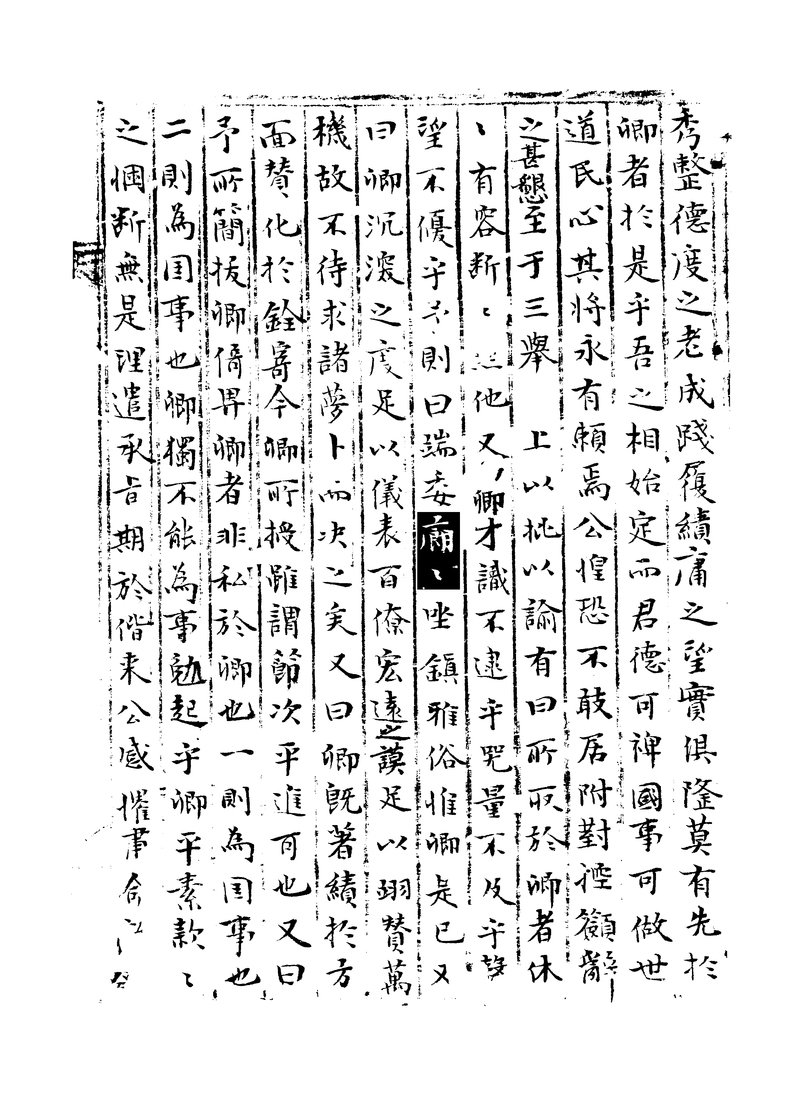 秀整德度之老成踐履績庸之望實俱隆莫有先於
卿者於是乎吾之相始定而君德可裨國事可做世
道民心其將永有賴焉公惶恐不敢居附對控籲辭
之甚懇至于三擧 上以批以諭有曰所取於卿者休
〻有容斷〻無他又卿才識不逮乎器量不及乎
望不優乎予則曰端委廟〻坐鎭雅俗惟卿是已又
曰卿沉深之度足以儀表百僚宏遠之謨足以翊贊萬
機故不待求諸夢卜而决之矣又曰卿旣著績於方
面贊化於銓寄今卿所授雖謂節次平進可也又曰
予所簡拔卿倚畀卿者非私於卿也一則為国事也
二則為国事也卿獨不能為事勉起乎卿平素款〻
之悃斷無是理遣承旨期於偕来公感慛肅命